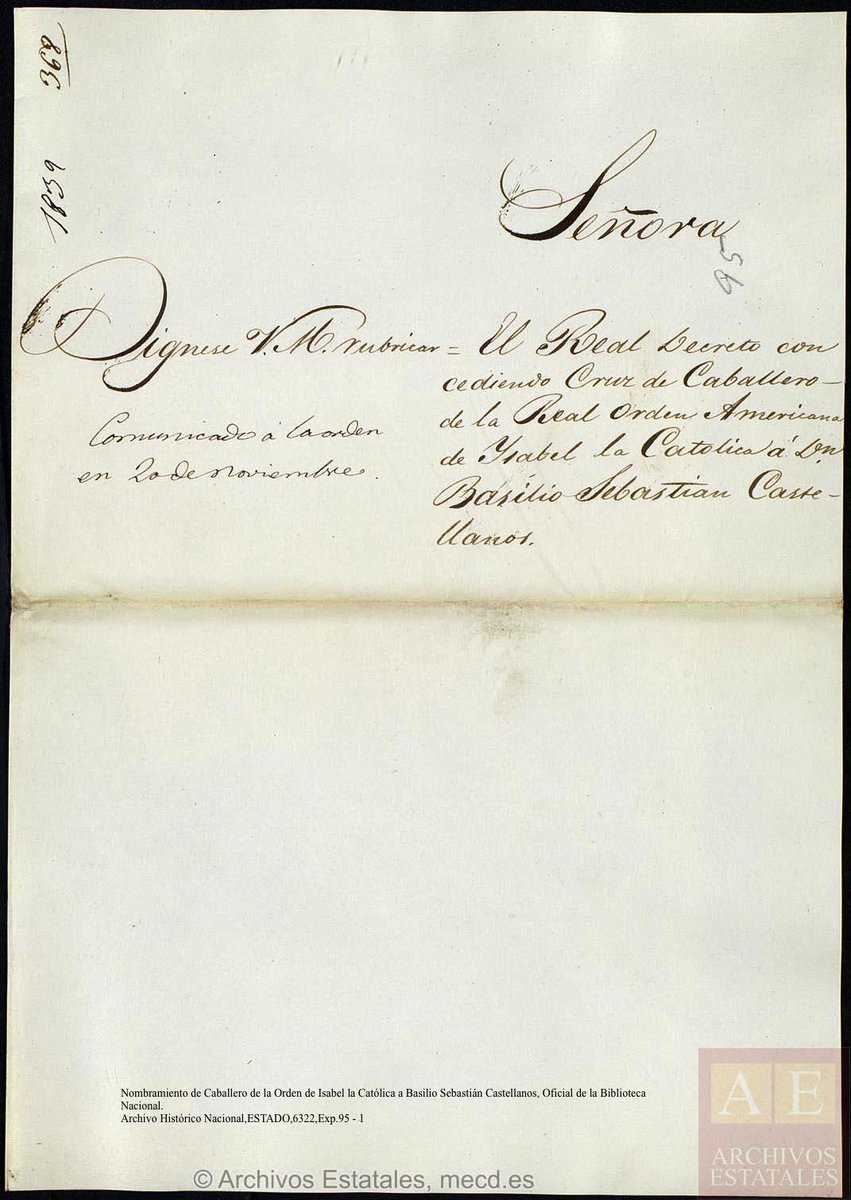 368
1839
Señora
95
Dignese V. M. rubricar = El Real Decreto con
cediendo Cruz de Caballero
de la Real Orden Americana
de Ysabel la Catolica á Dn.
Basilio Sebastian Caste-
llanos.
Comunicado á la orden
en 20 de noviembre.
Nombramiento de Caballero de la Orden de Isabel la Católica a Basilio Sebastián Castellanos, Oficial de la Biblioteca
Nacional.
Archivo Histórico Nacional,ESTADO,6322,Exp.95 - 1
© Archivos Estatales, mecd.es
AE
ARCHIVOS
ESTATALES